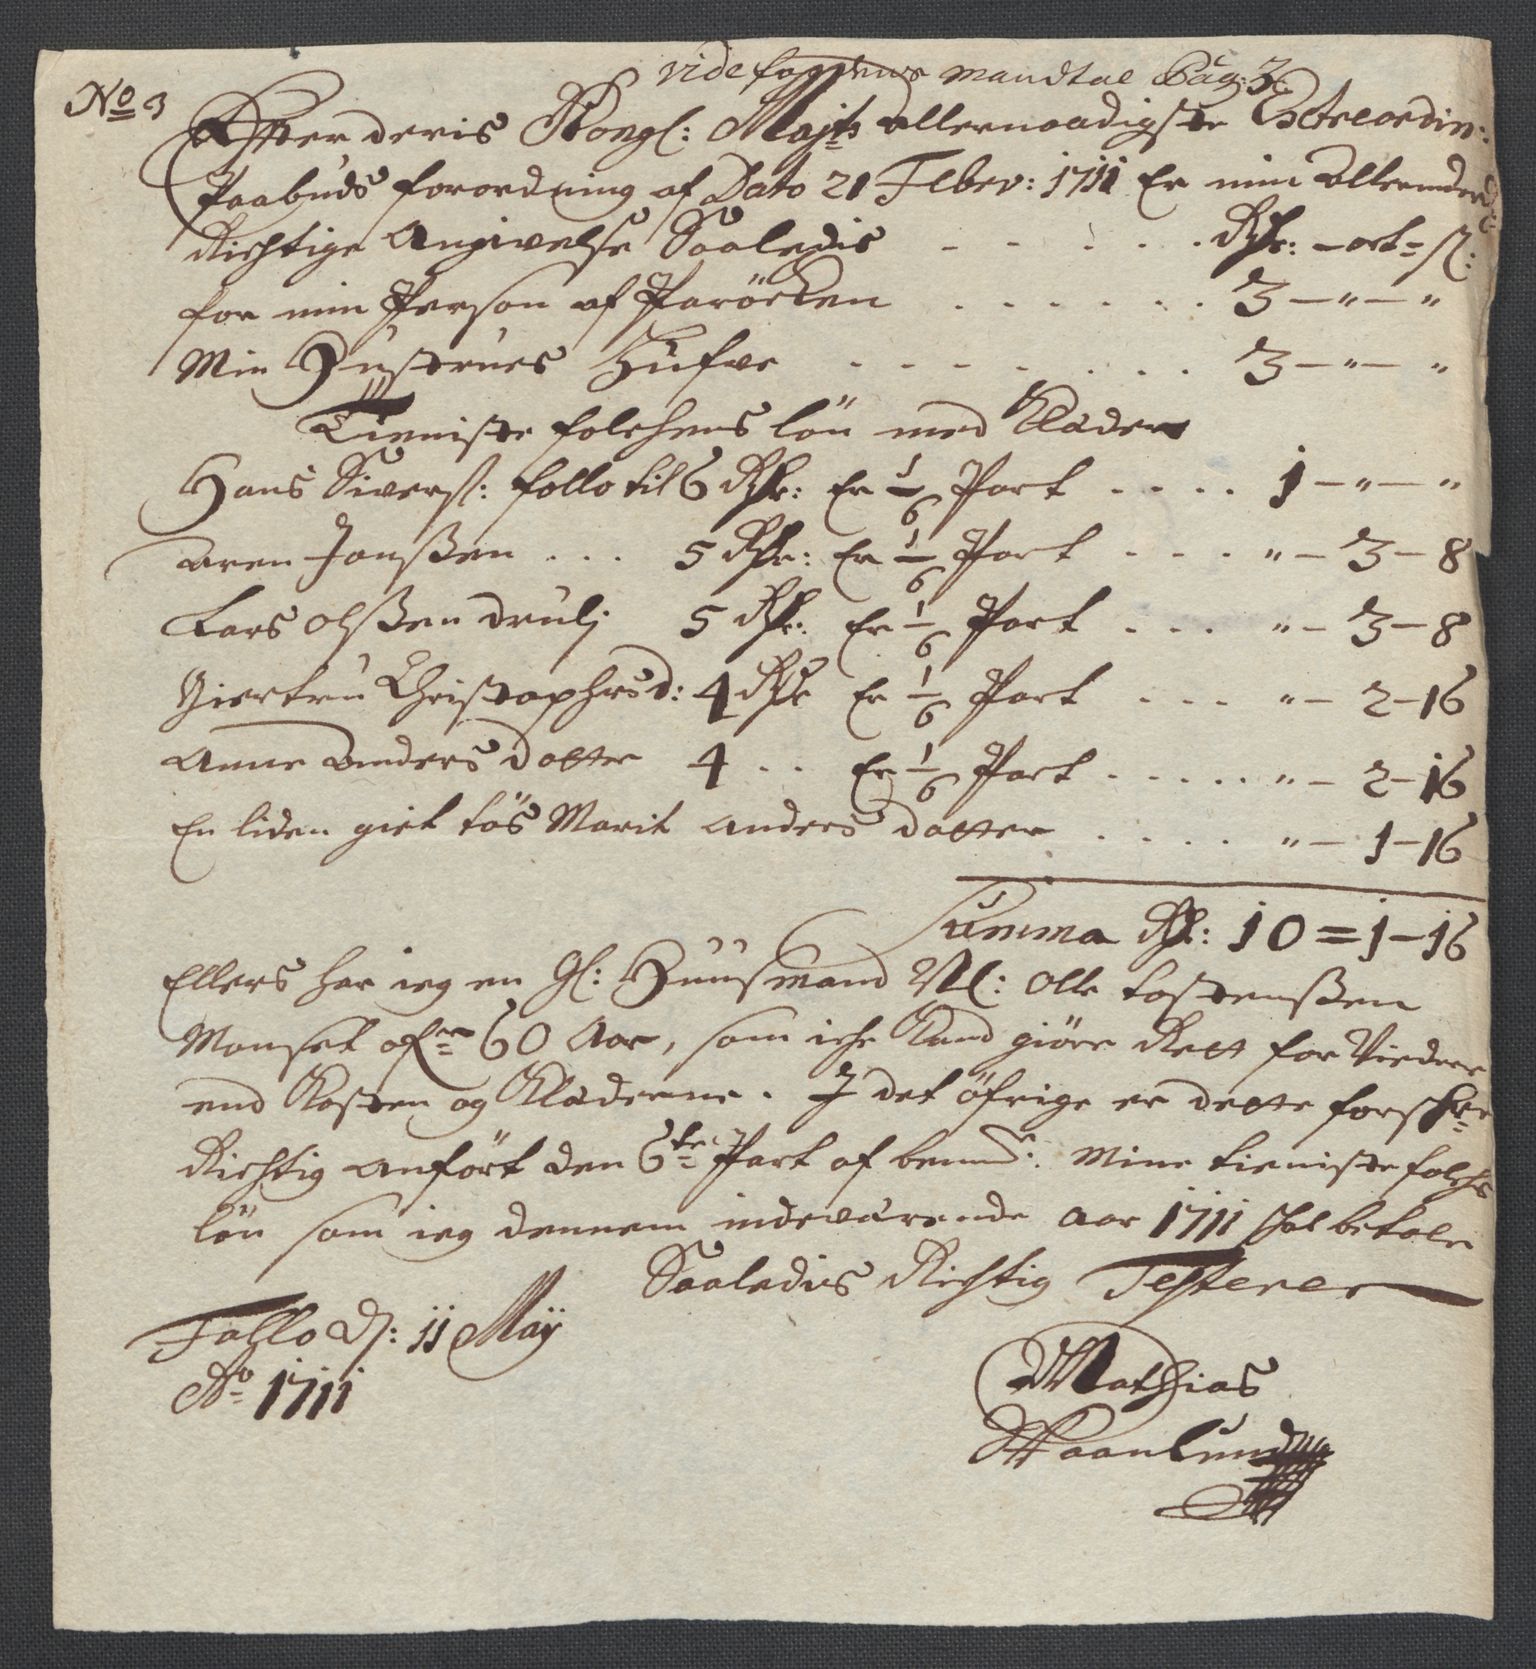 vide fogdens mandtal Pag: 3
No 3
Effter deris Kongl: Mayts allernaadigste Extraordin:
Paabuds forordning af Dato 21 Febrv: 1711 Er min allerunder
Richtige Angivelse Saaledis - - - - - Rdr: - ort - s:
for min Person af Parücken . . . . . . 3 - " - "
Min Hustrues Hufve . . . . . . . 3 - " - "
Tieniste folchens lön med Klæder
Hans Siversl: follo til 6 Rdr: Er 1/6 Part . . . . 1 - " - "
Aren Jonssen . . . 5 Rdr: Er 1/6 Part . . . . " - 3 - 8
Lars Olssen drulj 5 Rdr: Er 1/6 Part . . . " - 3 - 8
Giertru Christophersd: 4 Rdr Er 1/6 Part . . . " - 2 - 16
Anne Anders Datter 4 . . Er 1/6 Part . . . . . " - 2 - 16
En liden giet tös Marit Anders Datter . . . . . " - 1 - 16
Summa Rdr: 10 = 1 - 16
Ellers har ieg en gl: Huusmand Nl: Olle tostenssen
Monset ofr 60 Aar, som iche Kand giöre Rett for Videre
end Kosten og Klæderne. I det öfrige er dette forschrne
Richtig anfört den 6te Part af bemte: Mine tieniste folchs
lön som ieg dennem indeværende Aar 1711 schal betale
Saaledis Richtig Testerer
Follo D: 11 Maÿ
Ao 1711
Mathias